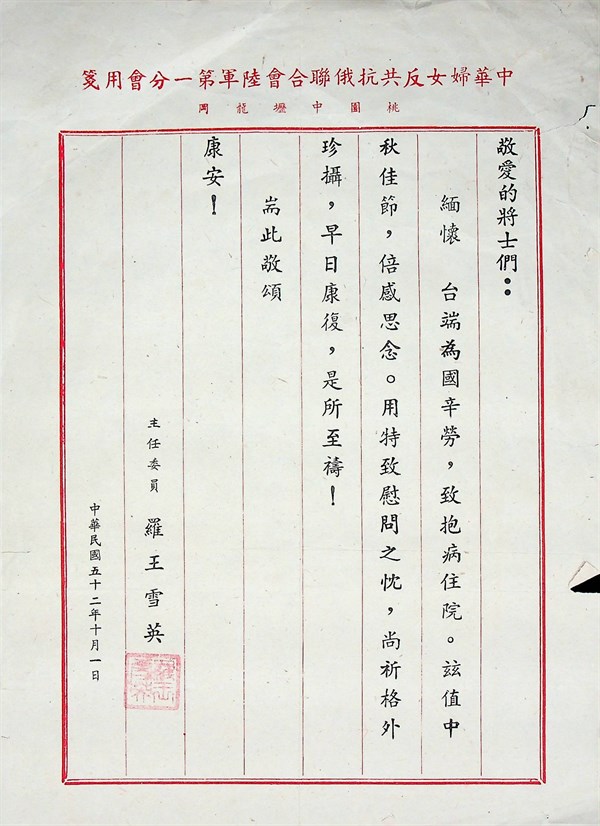 中華婦女反共抗俄聯合會陸軍第一分會用箋
桃園中壢龍岡
敬愛的將士們：
緬懷　台端為國辛勞，致抱病住院。玆值中
秋佳節，倍感思念。用特致慰問之忱，尚祈格外
珍攝，早日康復，是所至禱！
耑此敬頌
康安！
主任委員　羅王雪英
中華民國五十二年十月一日